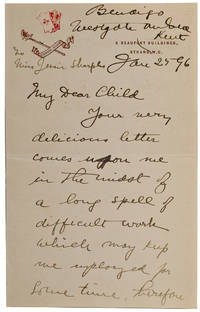 Bendigo
Westgate on Sea
Kent
5 BEAUFORT BUILDINGS,
STRAND, W.C.
To
Miss Jessie Sharples
Jan 25 96
My Dear Child
Your very
delicious letter
comes upon me
in the midst of
a long spell of
difficult work
which may keep
me employed for
some time. Therefore